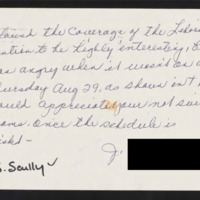 found the Coverage of the
ention to be highly interesting,
as angry when it wasn't on
Thursday Aug 29, as shown in
uld appreciate your not
ams. Once the schedule is
ished—
J.
S. Scully ✓